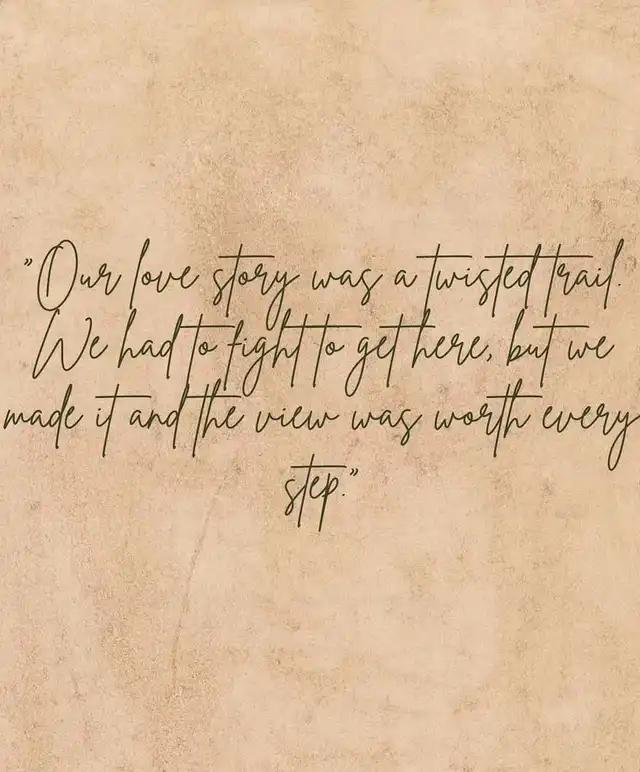 "Our love story was a twisted trail.
We had to fight to get here, but we
made it and the view was worth every
step."